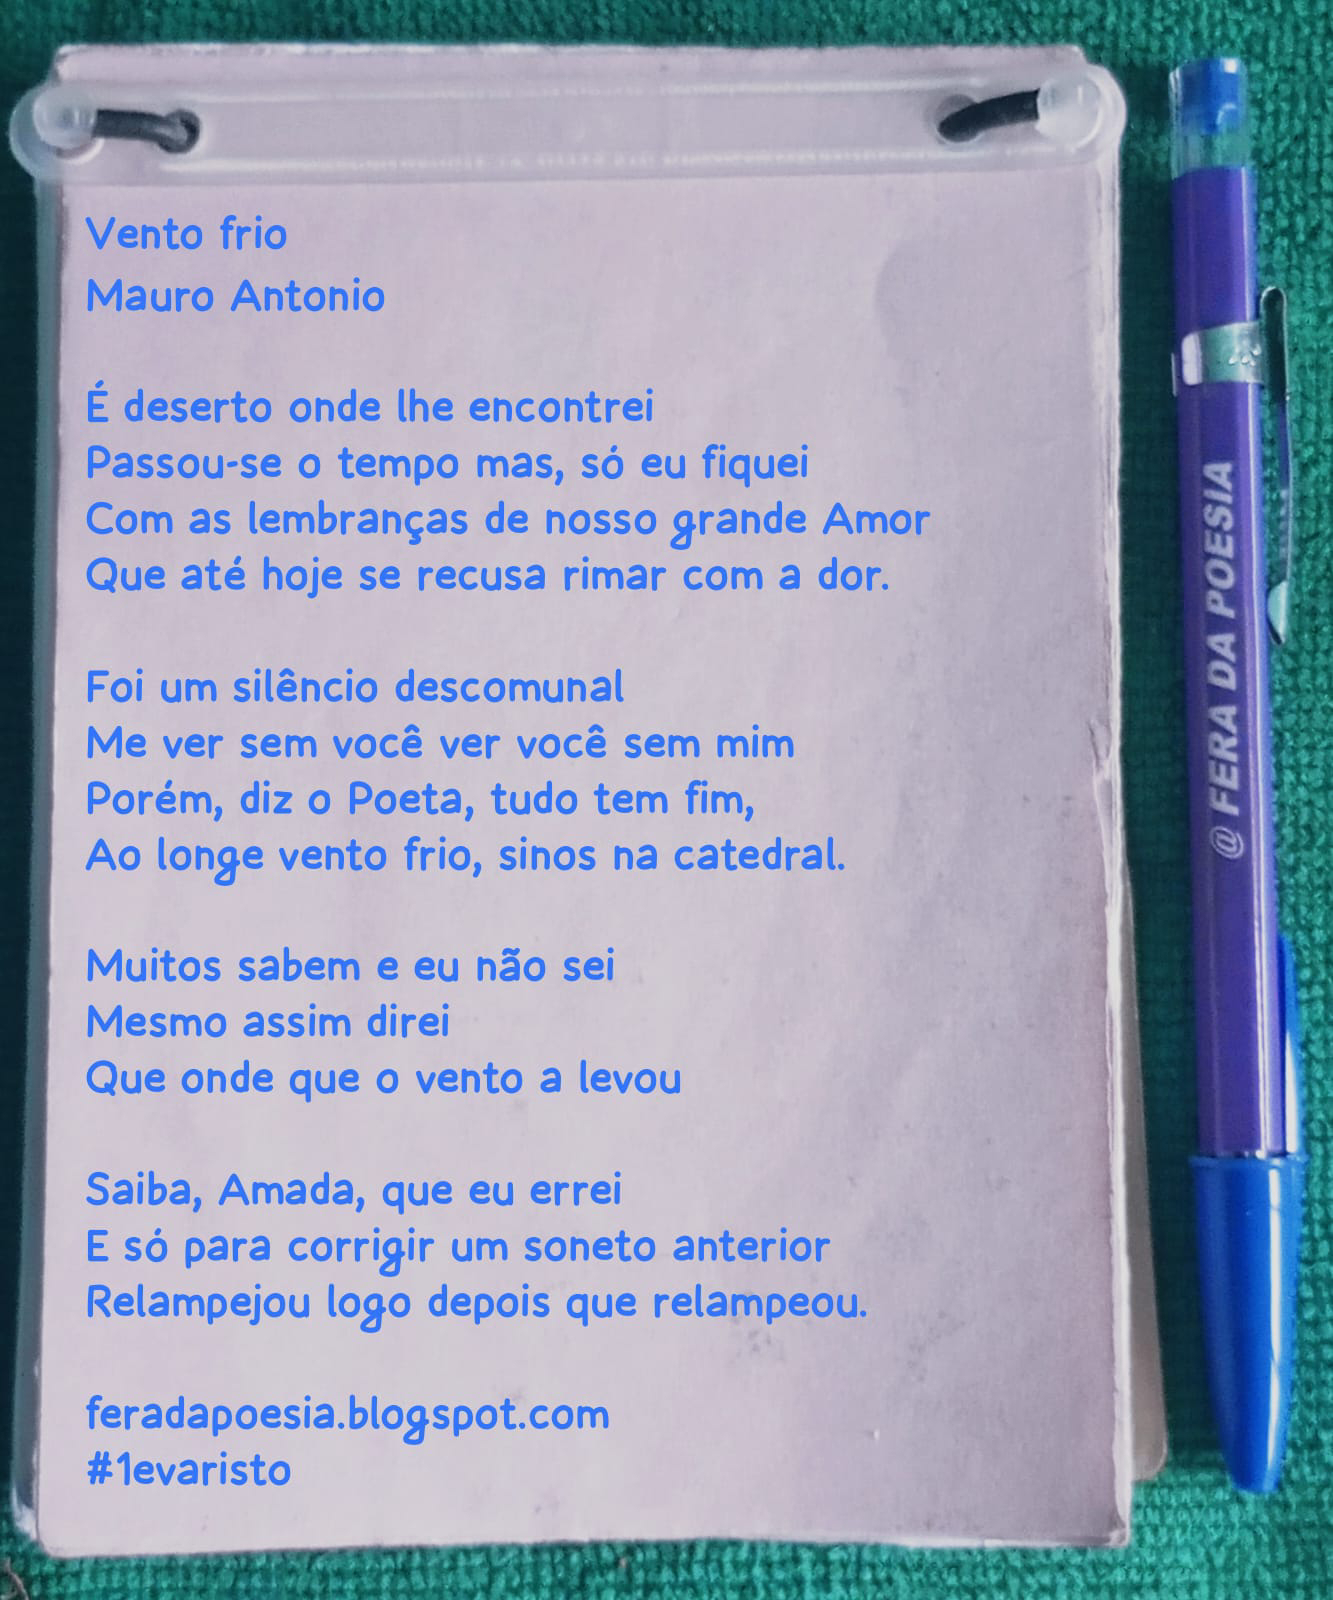 Vento frio
Mauro Antonio
É deserto onde lhe encontrei
Passou-se o tempo mas, só eu fiquei
Com as lembranças de nosso grande Amor
Que até hoje se recusa rimar com a dor.
Foi um silêncio descomunal
Me ver sem você ver você sem mim
Porém, diz o Poeta, tudo tem fim,
Ao longe vento frio, sinos na catedral.
Muitos sabem e eu não sei
Mesmo assim direi
Que onde que o vento a levou
Saiba, Amada, que eu errei
E só para corrigir um soneto anterior
Relampejou logo depois que relampeou.
feradapoesia.blogspot.com
#1evaristo
@ FERA DA POESIA